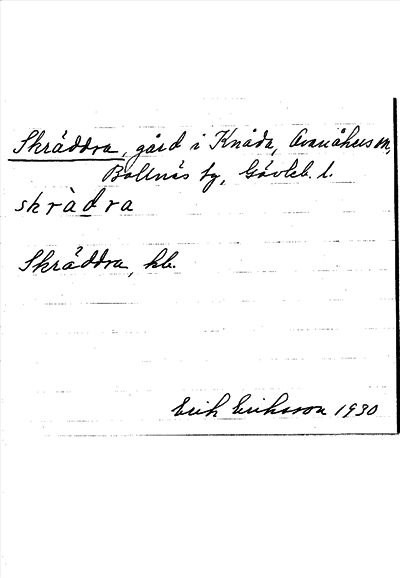 Skräddra, gård i Knåda, Ovanåkers sn,
Bollnäs tg, Gävleb. l.
skràdra
Skräddra, kb.
Erik Eriksson 1930